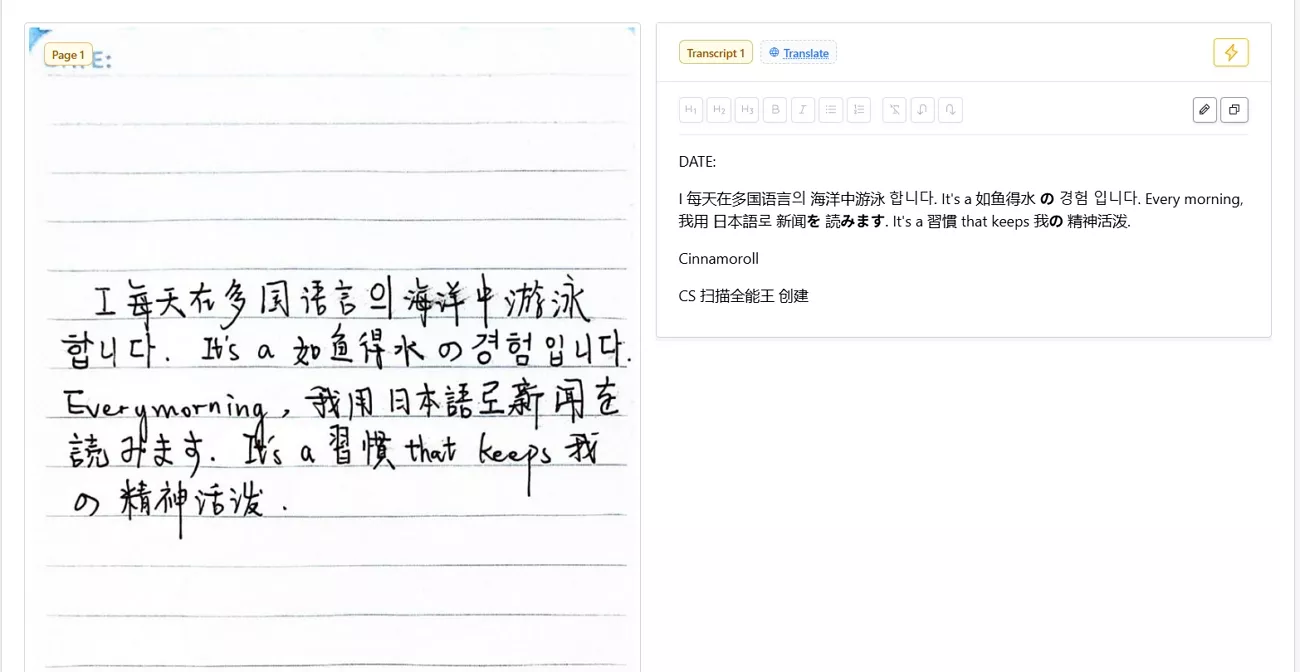 Page 1
DATE:
I 每天在多国语言의 海洋中游泳
합니다. It's a 如鱼得水 の 경험입니다.
Every morning, 我用 日本語로 新闻を
読みます. It's a 習慣 that keeps 我
の 精神活泼.
Transcript 1
Translate
H1 H2 H3 B I
DATE:
I 每天在多国语言의 海洋中游泳 합니다. It's a 如鱼得水 の 경험 입니다. Every morning,
我用 日本語로 新闻を 読みます. It's a 習慣 that keeps 我の 精神活泼.
Cinnamoroll
CS 扫描全能王 创建